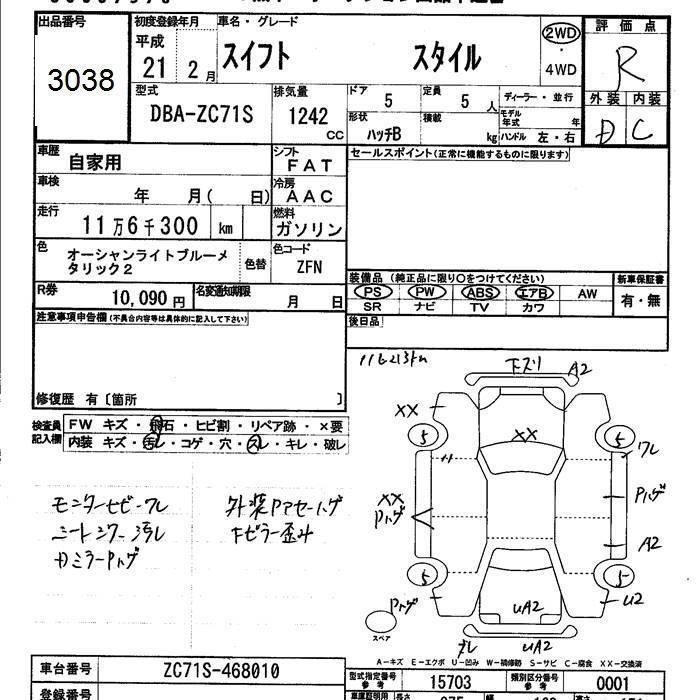 出品番号
3038
初度登録年月
平成
21 2月
車名・グレード
スイフト スタイル
2WD
・
4WD
評価点
R
外装 内装
D C
型式
DBA-ZC71S
排気量
1242
CC
ドア
5
定員
5 人
ディーラー・並行
形状
ハッチB
積載
kg
モデル年式 年
ハンドル 左・右
車歴
自家用
シフト
FAT
セールスポイント(正常に機能するものに限ります)
車検
年 月( 日)
冷房
AAC
走行
11万6千300 km
燃料
ガソリン
色
オーシャンライトブルーメ
タリック2
色替
色コード
ZFN
R券
10,090円
名変通知期限
月 日
装備品(純正品に限り○をつけてください)
新車保証書
PS PW ABS エアB AW
有・無
SR ナビ TV カワ
後日品
注意事項申告欄(不具合内容等は具体的に記入して下さい)
修復歴 有〔箇所 〕
116213km
下ズリ A2
XX
XX
5 5
ワレ
XX
Pハゲ
Pハゲ
A2
5 5
Pハゲ
UA2
U2
スペア
UA2
検査員
記入欄
FW キズ・飛石・ヒビ割・リペア跡・×要
内装 キズ・汚レ・コゲ・穴・スレ・キレ・破レ
外装Pアセーハゲ
シートシワー汚レ
Fピラー歪み
DミラーPハゲ
A-キズ E-エクボ U-凹み W-補修跡 S-サビ C-腐食 XX-交換済
車台番号
ZC71S-468010
型式指定番号
参考
15703
類別区分番号
参考
0001
登録番号